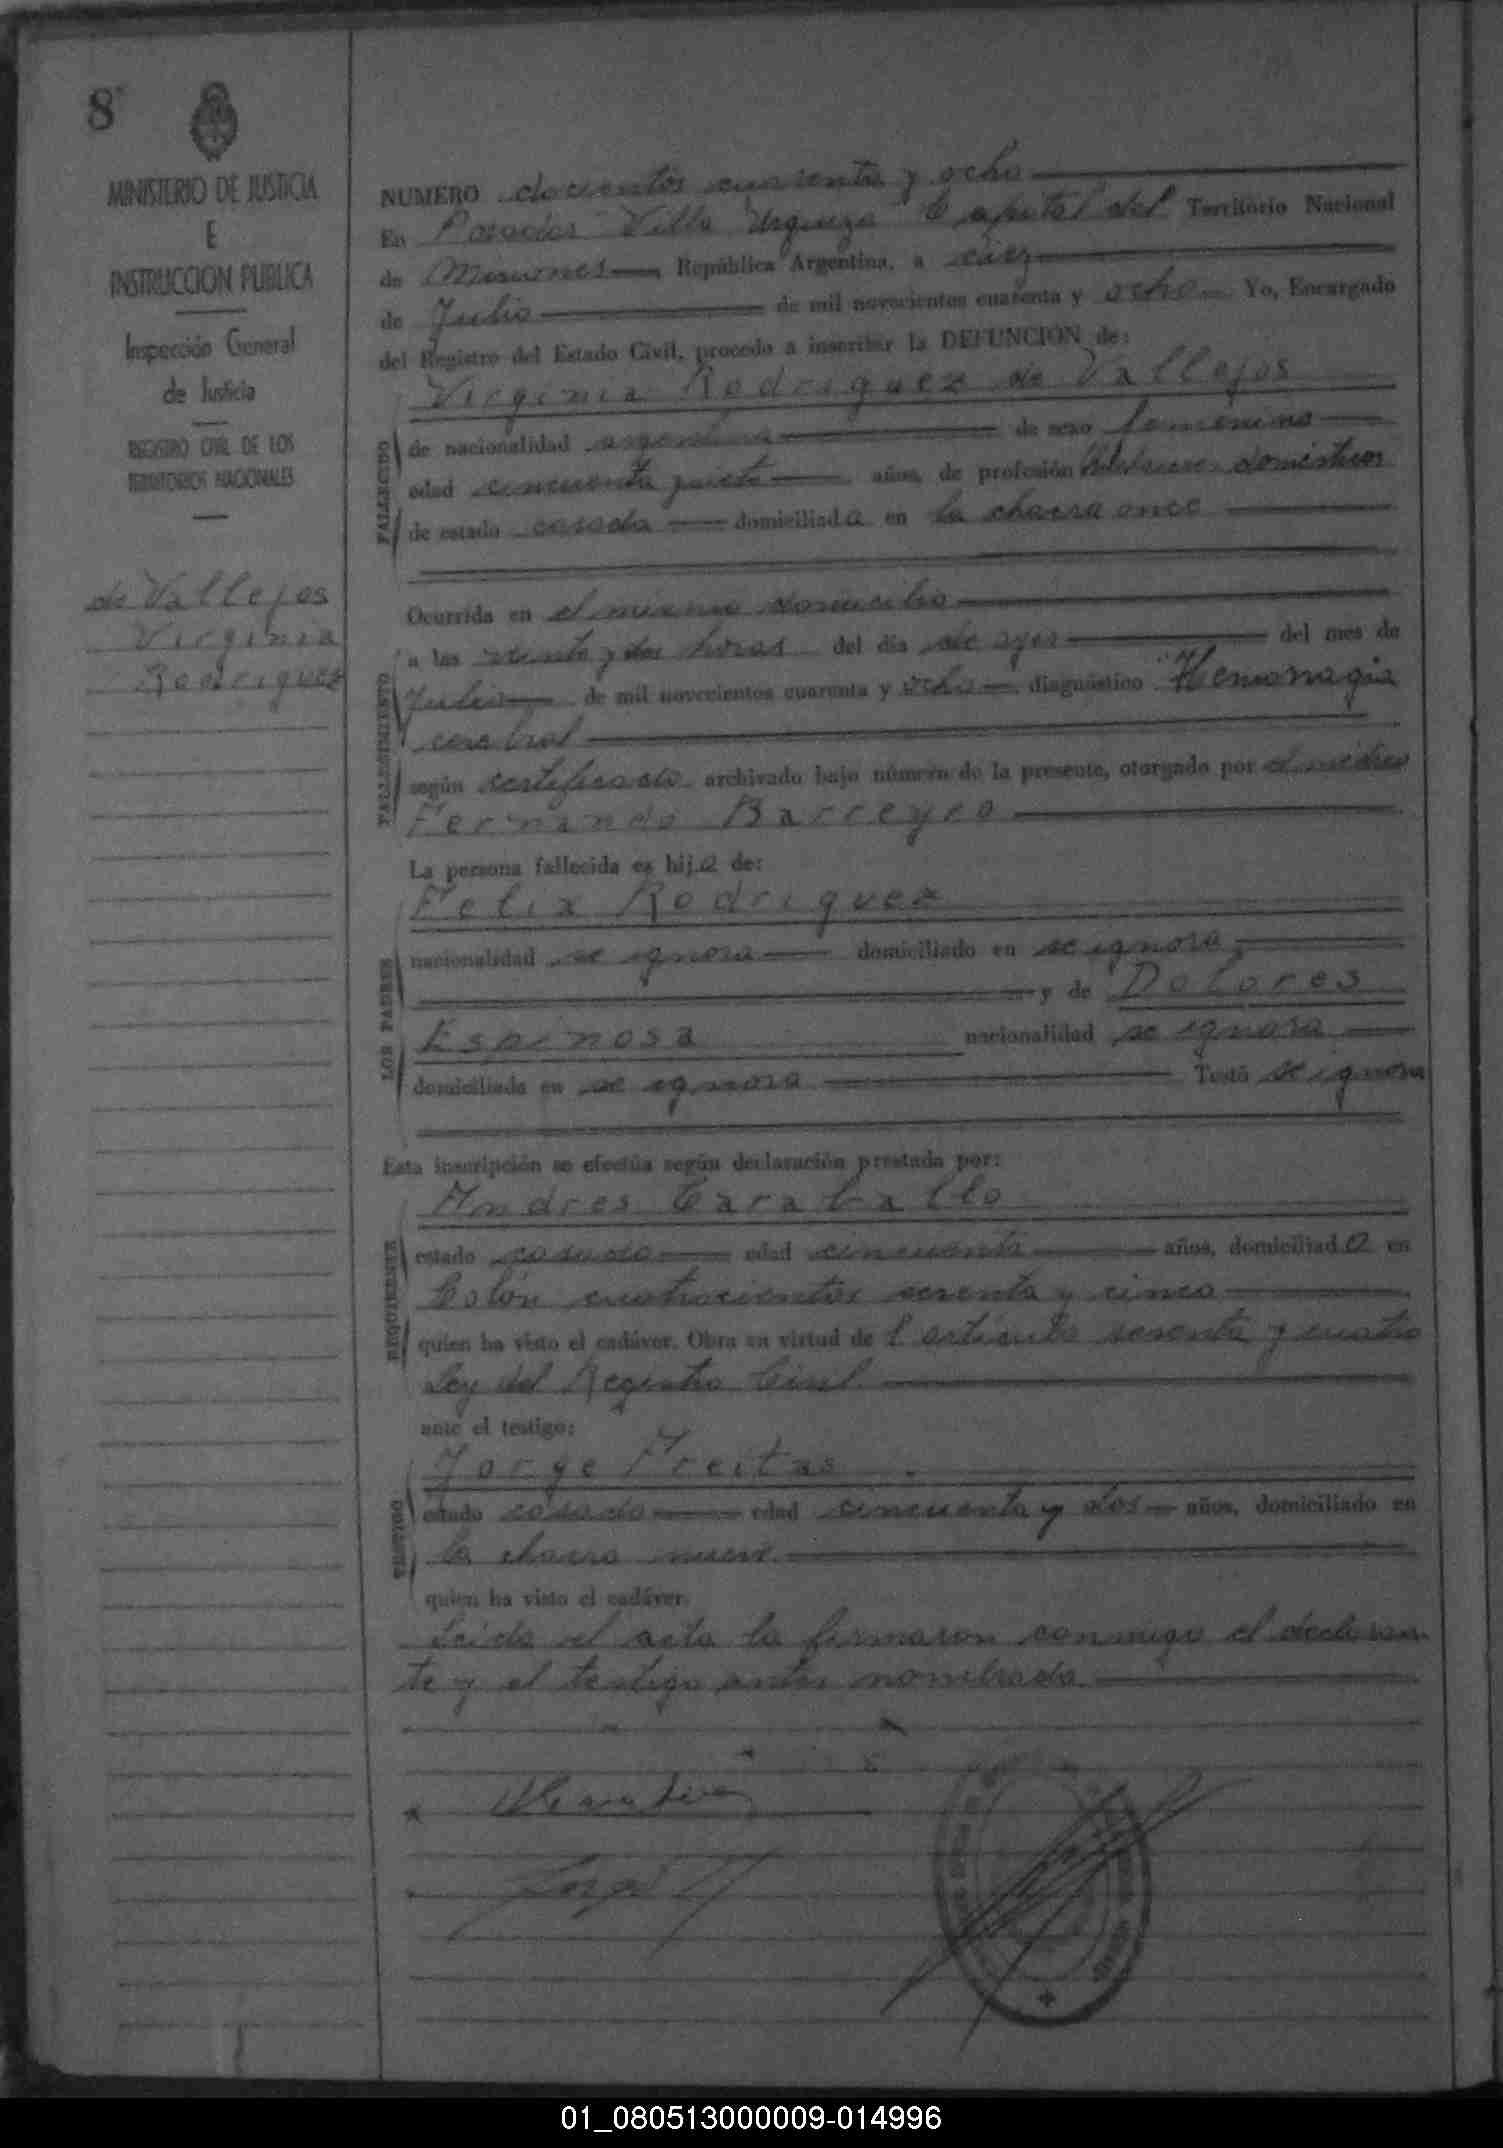 8
MINISTERIO DE JUSTICIA
E
INSTRUCCION PUBLICA
Inspección General
de Justicia
REGISTRO CIVIL DE LOS
TERRITORIOS NACIONALES
de Vallejos
Virginia
Rodriguez
NUMERO docientos cuarenta y ocho
En Posadas Villa Urquiza Capital del Territorio Nacional
de Misiones República Argentina, a diez
de Julio de mil novecientos cuarenta y ocho Yo, Encargado
del Registro del Estado Civil, procedo a inscribir la DEFUNCION de:
Virginia Rodriguez de Vallejos
FALLECIDO
de nacionalidad argentina de sexo femenino
edad cincuenta y siete años, de profesión domésticos
de estado casada domiciliada en la chacra once
FALLECIMIENTO
Ocurrida en el mismo domicilio
a las veinte y dos horas del día de ayer del mes de
Julio de mil novecientos cuarenta y ocho diagnóstico "Hemorragia
cerebral
según certificado archivado bajo número de la presente, otorgado por el médico
Fernando Barreyro
LOS PADRES
La persona fallecida es hija de:
Felix Rodriguez
nacionalidad se ignora domiciliado en se ignora
y de Dolores
Espinosa nacionalidad se ignora
domiciliada en se ignora Testó se ignora
Esta inscripción se efectúa según declaración prestada por:
REQUIRENTE
Andres Caraballo
estado casado edad cincuenta años, domiciliado en
Colón cuatrocientos sesenta y cinco
quien ha visto el cadáver. Obra en virtud del artículo sesenta y cuatro
Ley del Registro Civil
ante el testigo:
TESTIGO
Jorge Freitas
estado casado edad cincuenta y dos años, domiciliado en
la chacra nueve
quien ha visto el cadáver.
Leida el acta la firmaron conmigo el declaran-
te y el testigo antes nombrado
01_080513000009-014996